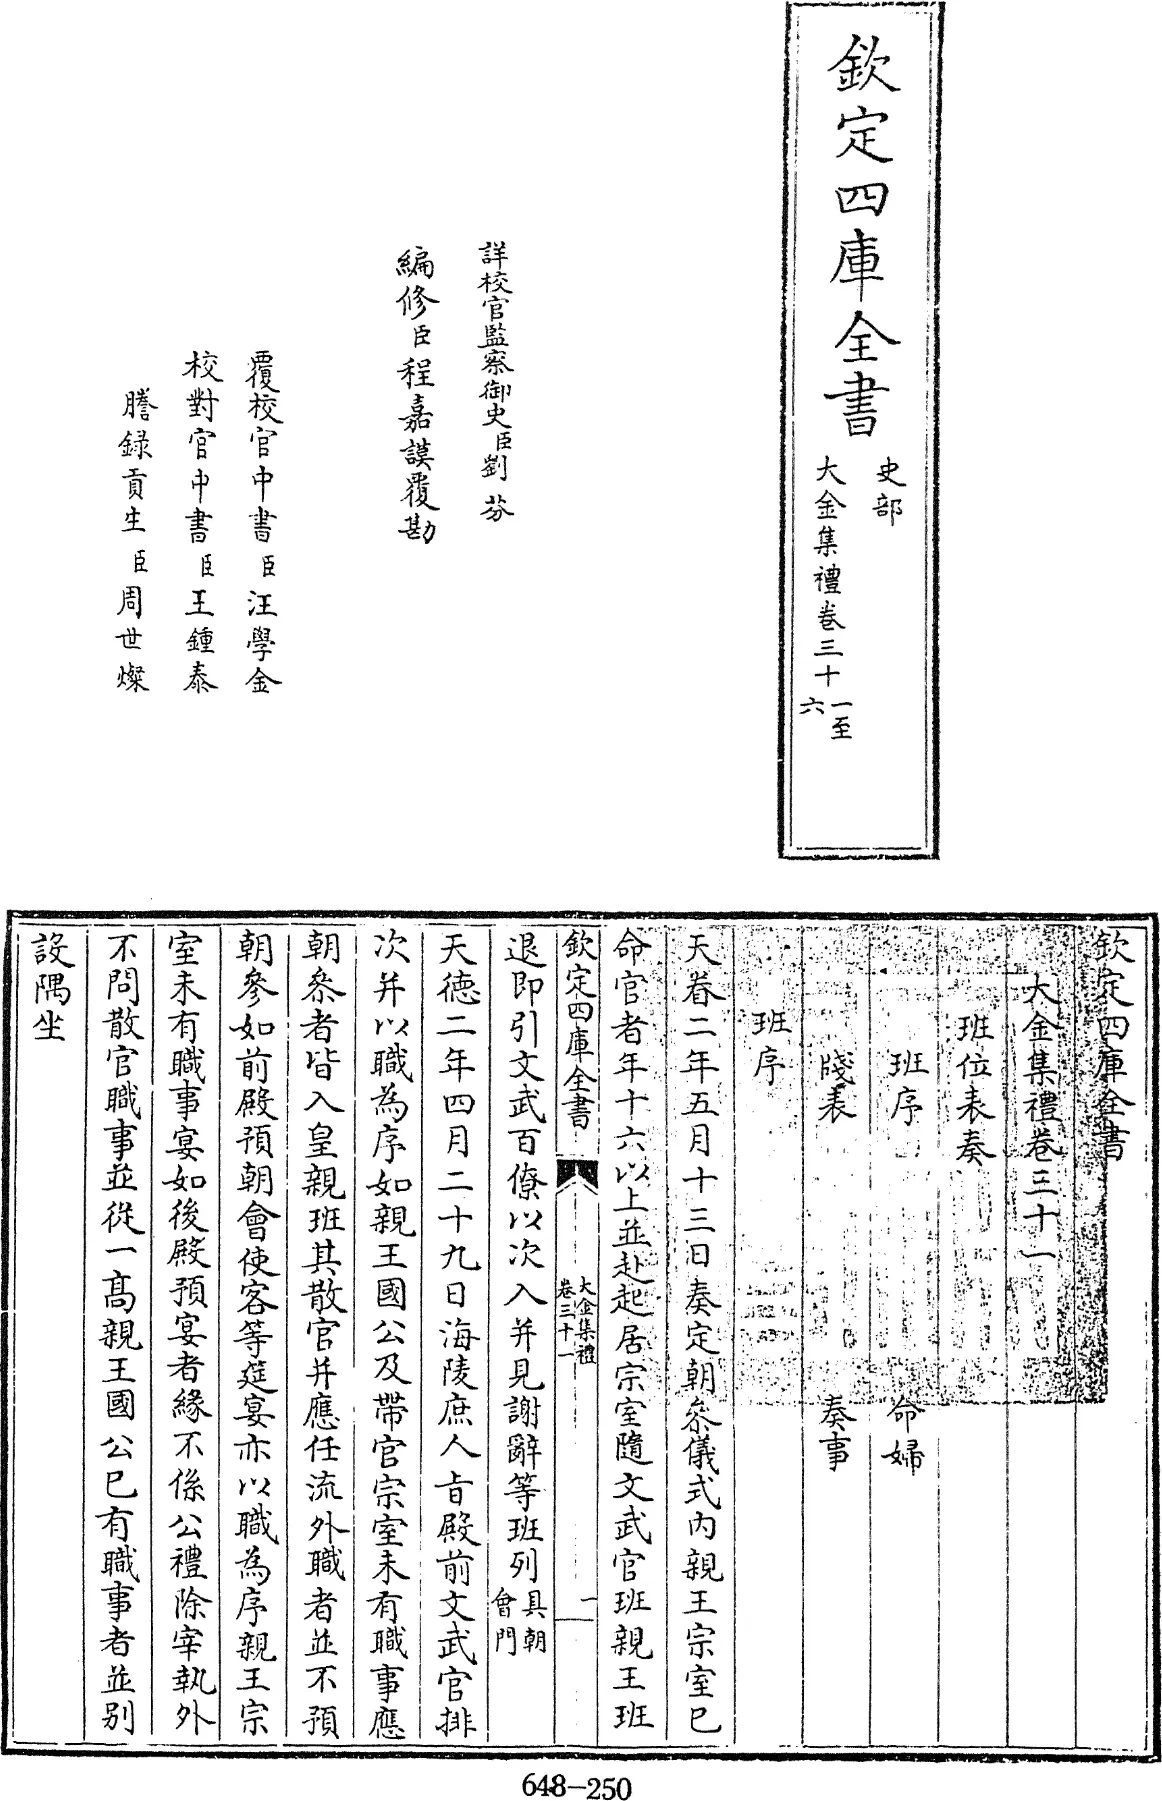 欽定四庫全書
史部
大金集禮卷三十一至六
詳校官監察御史臣劉芬
編修臣程嘉謨覆勘
覆校官中書臣汪學金
校對官中書臣王鍾泰
謄録貢生臣周世燦
欽定四庫全書
大金集禮卷三十一
班位表奏
班序 命婦
牋表 奏事
班序
天眷二年五月十三日奏定朝叅儀式内親王宗室已
命官者年十六以上並赴起居宗室隨文武官班親王班
欽定四庫全書
大金集禮
卷三十一
一
退即引文武百僚以次入并見謝辭等班列具朝會門
天德二年四月二十九日海陵庶人旨殿前文武官排
次并以職為序如親王國公及帶官宗室未有職事應
朝叅者皆入皇親班其散官并應任流外職者並不預
朝叅如前殿預朝會使客等筵宴亦以職為序親王宗
室未有職事宴如後殿預宴者緣不係公禮除宰執外
不問散官職事並從一髙親王國公已有職事者並别
設隅坐
648-250